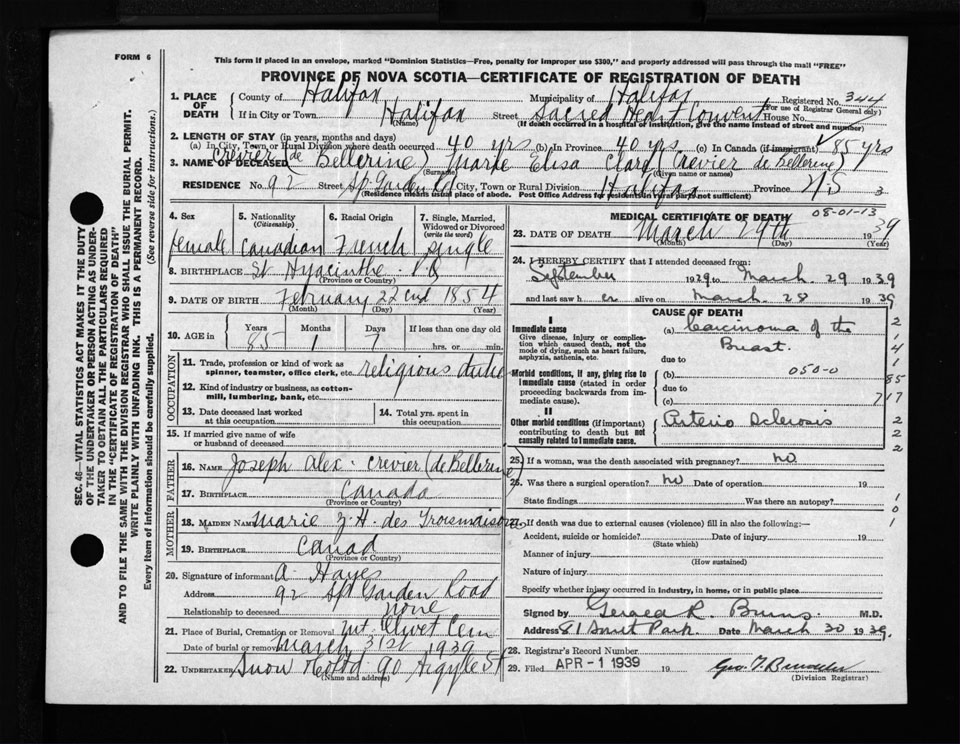 FORM 6
This form if placed in an envelope, marked "Dominion Statistics—Free, penalty for improper use $300," and properly addressed will pass through the mail "FREE"
PROVINCE OF NOVA SCOTIA—CERTIFICATE OF REGISTRATION OF DEATH
1. PLACE OF DEATH
County of Halifax Municipality of Halifax Registered No. 344
(For use of Registrar General only)
If in City or Town Halifax Street Sacred Heart Convent House No.
(Name) (If death occurred in a hospital or institution, give the name instead of street and number)
2. LENGTH OF STAY (in years, months and days)
(a) In City, Town or Rural Division where death occurred 40 yrs (b) In Province 40 yrs (c) In Canada (if immigrant) 85 yrs
3. NAME OF DECEASED Crevier (de Bellerive) Marie Elisa Clara (Crevier de Bellerive)
(Surname) (Given name or names)
RESIDENCE No. 92 Street Sp. Garden Rd City, Town or Rural Division Halifax Province N S 3
(Residence means usual place of abode. Post Office Address for residents in rural parts not sufficient)
4. Sex female
5. Nationality (Citizenship) Canadian
6. Racial Origin French
7. Single, Married, Widowed or Divorced (write the word) single
8. BIRTHPLACE St Hyacinthe P Q
(Province or Country)
9. DATE OF BIRTH February 22nd 1854
(Month) (Day) (Year)
10. AGE in Years 85 Months 1 Days 7 If less than one day old
hrs. or min.
OCCUPATION
11. Trade, profession or kind of work as spinner, teamster, office clerk, etc. religious
12. Kind of industry or business, as cotton-mill, lumbering, bank, etc.
13. Date deceased last worked at this occupation
14. Total yrs. spent in this occupation
15. If married give name of wife or husband of deceased
FATHER
16. NAME Joseph Alex. Crevier (de Bellerive)
17. BIRTHPLACE Canada
(Province or Country)
MOTHER
18. MAIDEN NAME Marie Z. H. des Troismaisons
19. BIRTHPLACE Canad
(Province or Country)
20. Signature of informant A Hayes
Address 92 Sp Garden Road
Relationship to deceased none
21. Place of Burial, Cremation or Removal Mt. Olivet Cem
Date of burial or removal March 31st 1939
22. UNDERTAKER Snow 90 Argyle St
(Name and address)
MEDICAL CERTIFICATE OF DEATH
08-01-13
23. DATE OF DEATH March 29th 1939
(Month) (Day) (Year)
24. I HEREBY CERTIFY that I attended deceased from:
September 1929 to March 29 1939
and last saw her alive on March 28 1939
CAUSE OF DEATH
I
Immediate cause
Give disease, injury or complication which caused death, not the mode of dying, such as heart failure, asphyxia, asthenia, etc.
(a) Carcinoma of the Breast.
due to
Morbid conditions, if any, giving rise to immediate cause (stated in order proceeding backwards from immediate cause).
(b) 050-0
due to
(c)
II
Other morbid conditions (if important) contributing to death but not causally related to immediate cause.
Arterio Sclerosis
2
1
4
1
85
717
2
2
2
25. If a woman, was the death associated with pregnancy? no
26. Was there a surgical operation? no Date of operation 19
State findings Was there an autopsy?
1
0
1
27. If death was due to external causes (violence) fill in also the following:—
Accident, suicide or homicide? Date of injury 19
(State which)
Manner of injury
(How sustained)
Nature of injury
Specify whether injury occurred in industry, in home, or in public place
Signed by Gerald R. Burns M.D.
Address 81 Park Date March 30 1939.
28. Registrar's Record Number
29. Filed APR - 1 1939 19
(Division Registrar)
SEC. 46—VITAL STATISTICS ACT MAKES IT THE DUTY
OF THE UNDERTAKER OR PERSON ACTING AS UNDER-
TAKER TO OBTAIN ALL THE PARTICULARS REQUIRED
IN THE "CERTIFICATE OF REGISTRATION OF DEATH"
AND TO FILE THE SAME WITH THE DIVISION REGISTRAR WHO SHALL ISSUE THE BURIAL PERMIT.
WRITE PLAINLY WITH UNFADING INK. THIS IS A PERMANENT RECORD.
Every item of information should be carefully supplied. (See reverse side for instructions.)